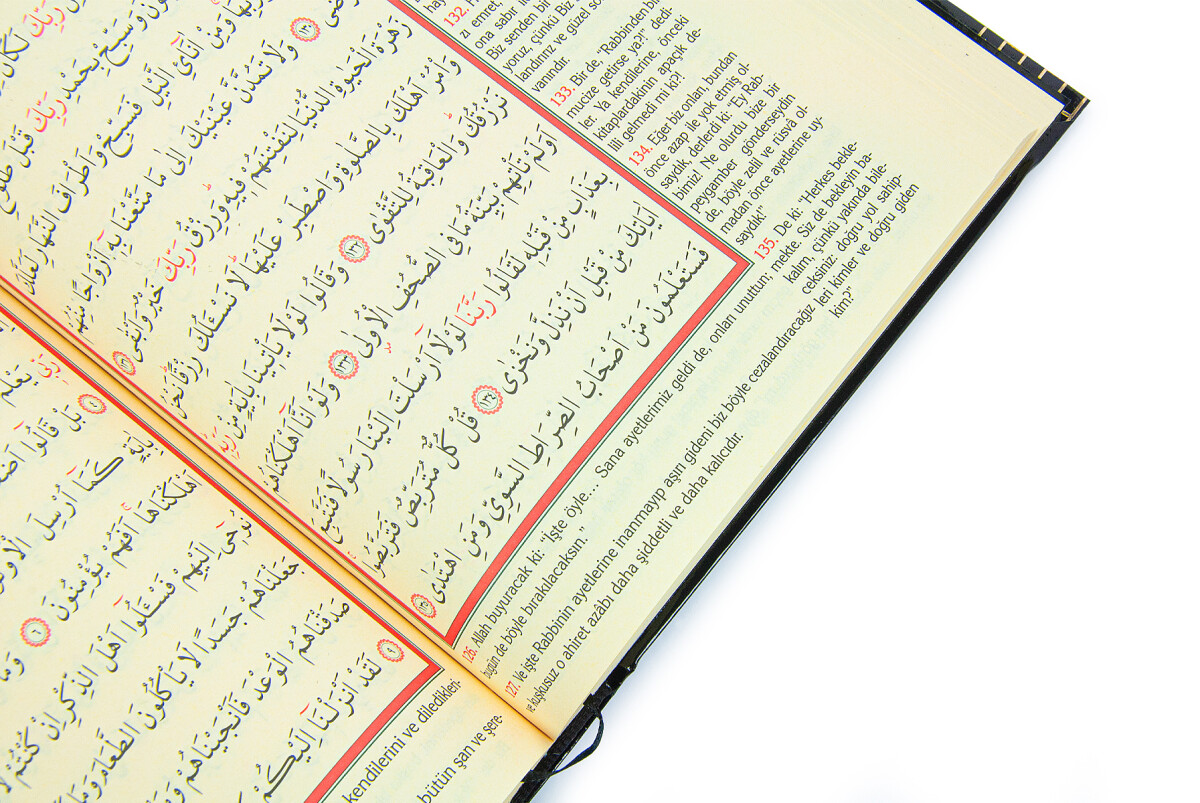 رَبِّكَ
وَسَبِّحْ بِحَمْدِ رَبِّكَ قَبْلَ طُلُوعِ
وَمِنْ اٰنَٓائِ الَّيْلِ فَسَبِّحْ وَاَطْرَافَ النَّهَارِ لَعَلَّكَ
وَلَا تَمُدَّنَّ عَيْنَيْكَ اِلٰى مَا مَتَّعْنَا بِه۪ٓ اَزْوَاجًا مِنْهُمْ
زَهْرَةَ الْحَيٰوةِ الدُّنْيَا لِنَفْتِنَهُمْ ف۪يهِ وَرِزْقُ رَبِّكَ خَيْرٌ وَاَبْقٰى
وَأْمُرْ اَهْلَكَ بِالصَّلٰوةِ وَاصْطَبِرْ عَلَيْهَا لَا نَسْـَٔلُكَ رِزْقًا نَحْنُ
نَرْزُقُكَ وَالْعَاقِبَةُ لِلتَّقْوٰى ١٣٢ وَقَالُوا لَوْلَا يَأْت۪ينَا بِاٰيَةٍ مِنْ رَبِّه۪
اَوَلَمْ تَأْتِهِمْ بَيِّنَةُ مَا فِي الصُّحُفِ الْاُولٰى ١٣٣ وَلَوْ اَنَّٓا اَهْلَكْنَاهُمْ
بِعَذَابٍ مِنْ قَبْلِه۪ لَقَالُوا رَبَّنَا لَوْلَٓا اَرْسَلْتَ اِلَيْنَا رَسُولًا فَنَتَّبِعَ
اٰيَاتِكَ مِنْ قَبْلِ اَنْ نَذِلَّ وَنَخْزٰى ١٣٤ قُلْ كُلٌّ مُتَرَبِّصٌ فَتَرَبَّصُوا
فَسَتَعْلَمُونَ مَنْ اَصْحَابُ الصِّرَاطِ السَّوِيِّ وَمَنِ اهْتَدٰى ١٣٥
132.
zı emret,
ona sabır
Biz senden bir
yoruz, çünkü Biz
landırırız ve güzel
vanındır.
133. Bir de, "Rabbinden bir
mucize getirse ya?!" dedi-
ler. Ya kendilerine, önceki
kitaplardakinin apaçık de-
lili gelmedi mi ki?!
134. Eğer biz onları, bundan
önce azap ile yok etmiş ol-
saydık, derlerdi ki: "Ey Rab-
bimiz! Ne olurdu bize bir
peygamber gönderseydin
de, böyle zelil ve rüsvâ ol-
madan önce ayetlerine uy-
saydık!"
135. De ki: "Herkes bekle-
mekte. Siz de bekleyin ba-
kalım, çünkü yakında bile-
ceksiniz: doğru yol sahip-
leri kimler ve doğru giden
kim?"
126. Allah buyuracak ki: "İşte öyle... Sana ayetlerimiz geldi de, onları unuttun;
bugün de böyle bırakılacaksın."
127. Ve işte Rabbinin ayetlerine inanmayıp aşırı gideni biz böyle cezalandıracağız
ve kuşkusuz o ahiret azâbı daha şiddetli ve daha kalıcıdır.
يَعْلَمُ
٤ بَلْ قَالُٓوا
بِاٰيَةٍ كَمَٓا اُرْسِلَ
اَهْلَكْنَاهَا اَفَهُمْ يُؤْمِنُونَ ٦ وَمَٓا
نُوح۪ٓي اِلَيْهِمْ فَسْـَٔلُٓوا اَهْلَ الذِّكْرِ اِنْ كُنْتُمْ لَا
جَعَلْنَاهُمْ جَسَدًا لَا يَأْكُلُونَ الطَّعَامَ وَمَا
صَدَقْنَاهُمُ الْوَعْدَ فَاَنْجَيْنَاهُمْ
٩ لَقَدْ اَنْزَلْنَٓا اِلَيْكُمْ
kendilerini ve diledikleri-
bütün şan ve şere-